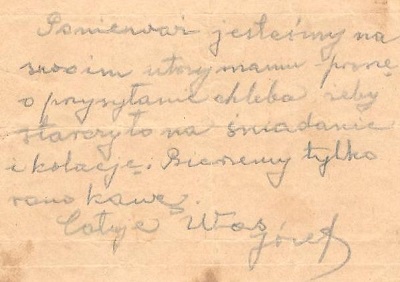 Ponieważ jesteśmy na
swoim utrzymaniu proszę
o przysyłanie chleba żeby
starczyło na śniadanie
i kolację. Bierzemy tylko
rano kawę.
Całuje Was
Józef